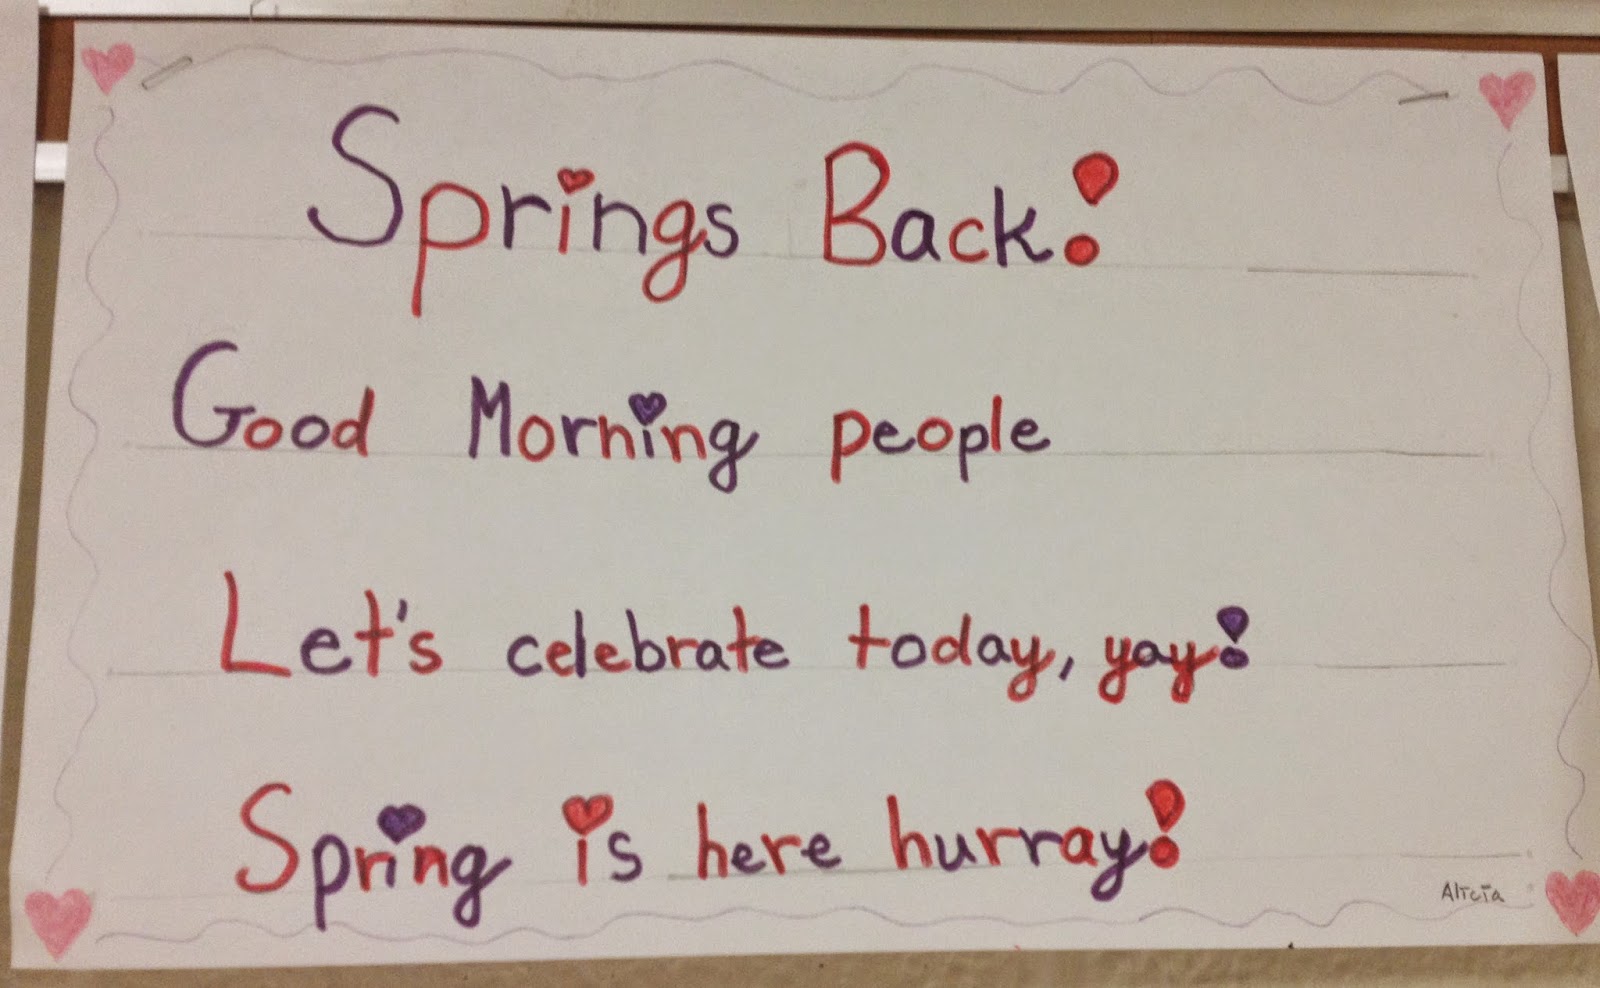 Springs Back!
Good Morning people
Let's celebrate today, yay!
Spring is here hurray!
Alicia